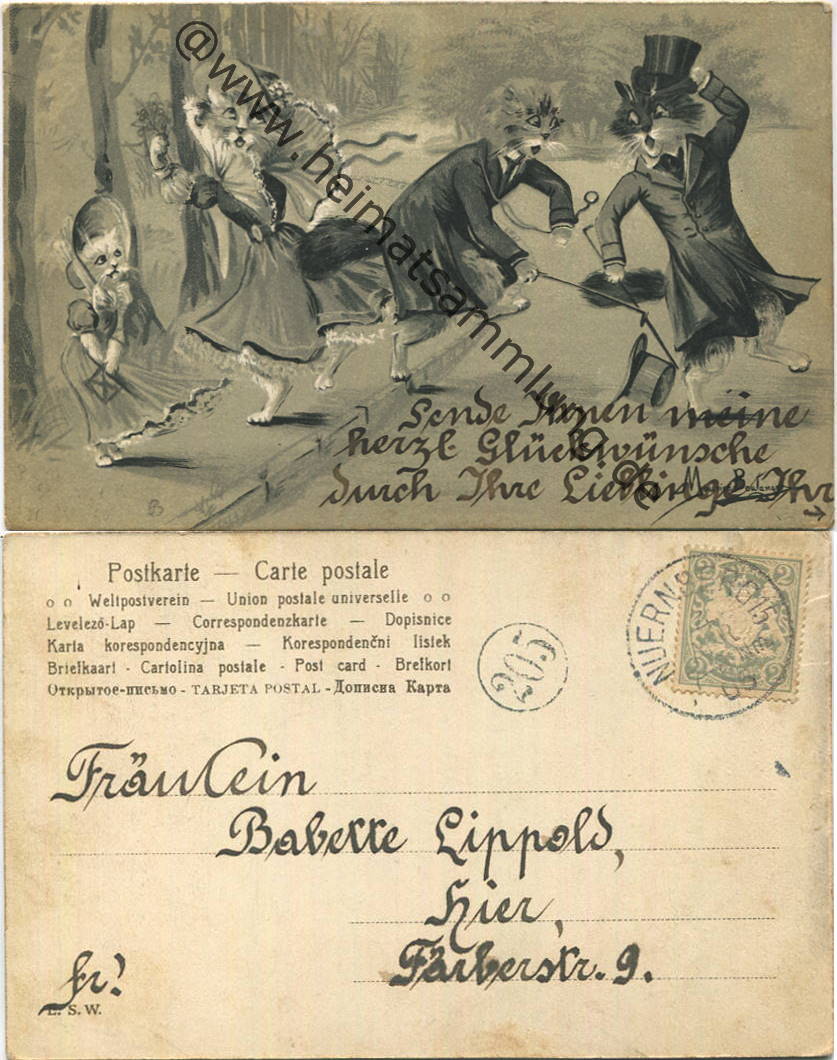 @www.heimatsammlung.de
Sende Ihnen meine
herzl. Glückwünsche
durch Ihre Lieblinge Ihr
31
B
Postkarte — Carte postale
o o Weltpostverein — Union postale universelle o o
Levelező-Lap — Correspondenzkarte — Dopisnice
Karta korespondencyjna — Korespondenční lístek
Briefkaart - Cartolina postale - Post card - Brefkort
Открытое-письмо - TARJETA POSTAL - Дописна Карта
205
NUERNB
2 2
Fräulein
Babette Lippold,
Hier,
Färberstr. 9.
fr!
E. S. W.